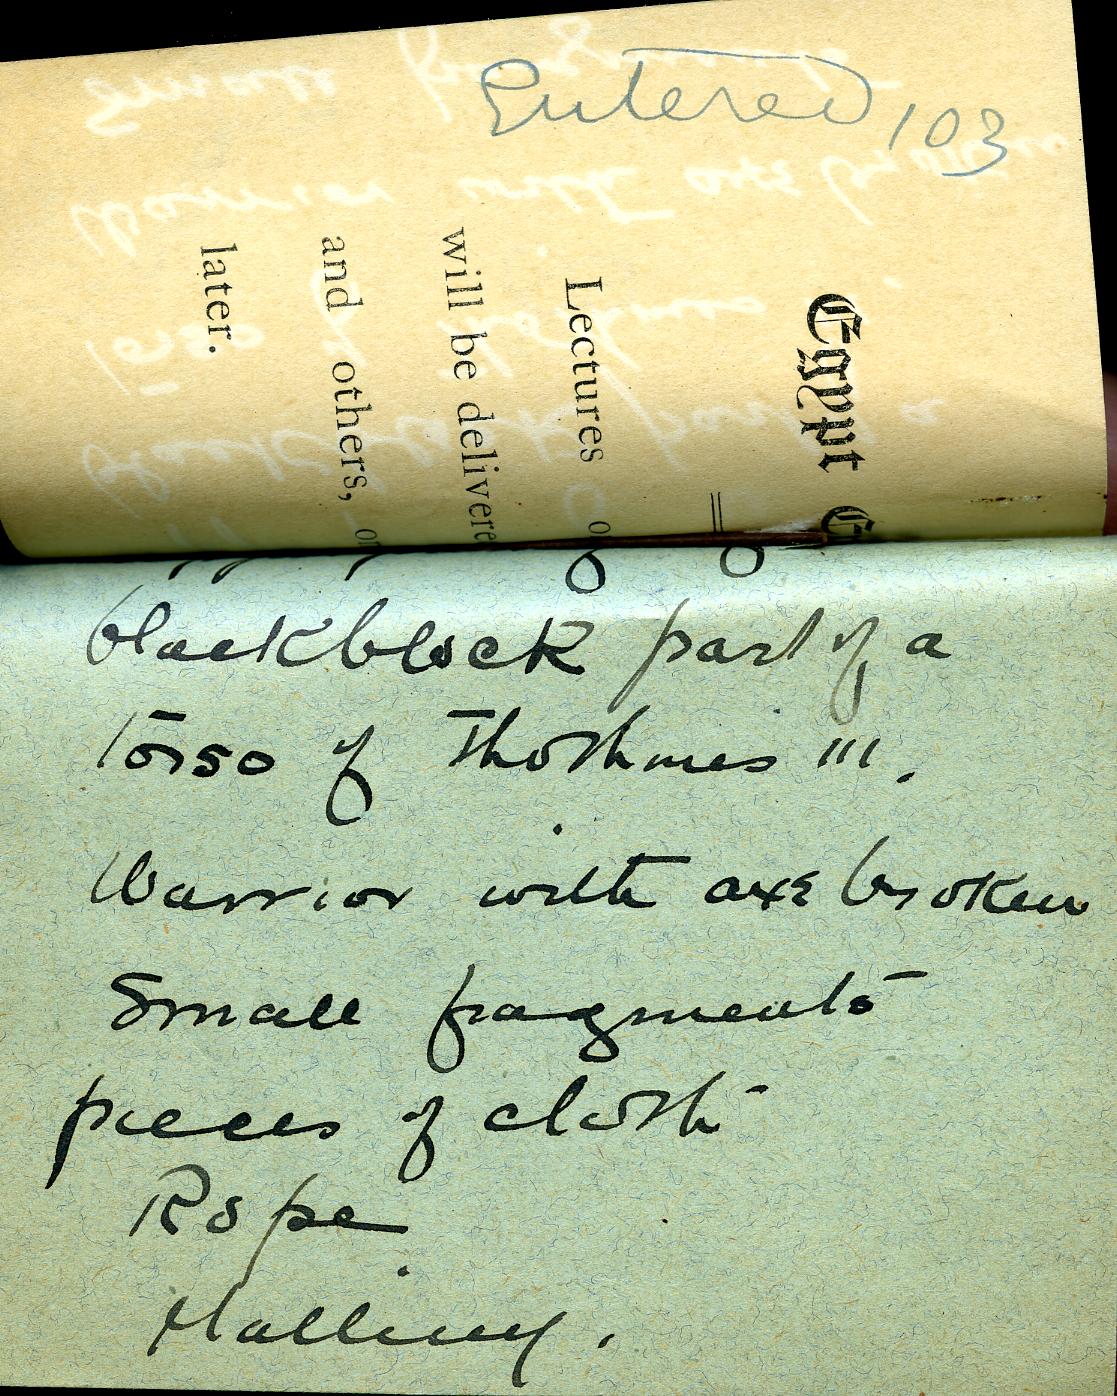 Entered 103
Egypt
Lectures
will be delivere
and others, or
later.
black block part of a
Torso of Thothmes III.
Warrior with axe broken
Small fragments
pieces of cloth
Rope